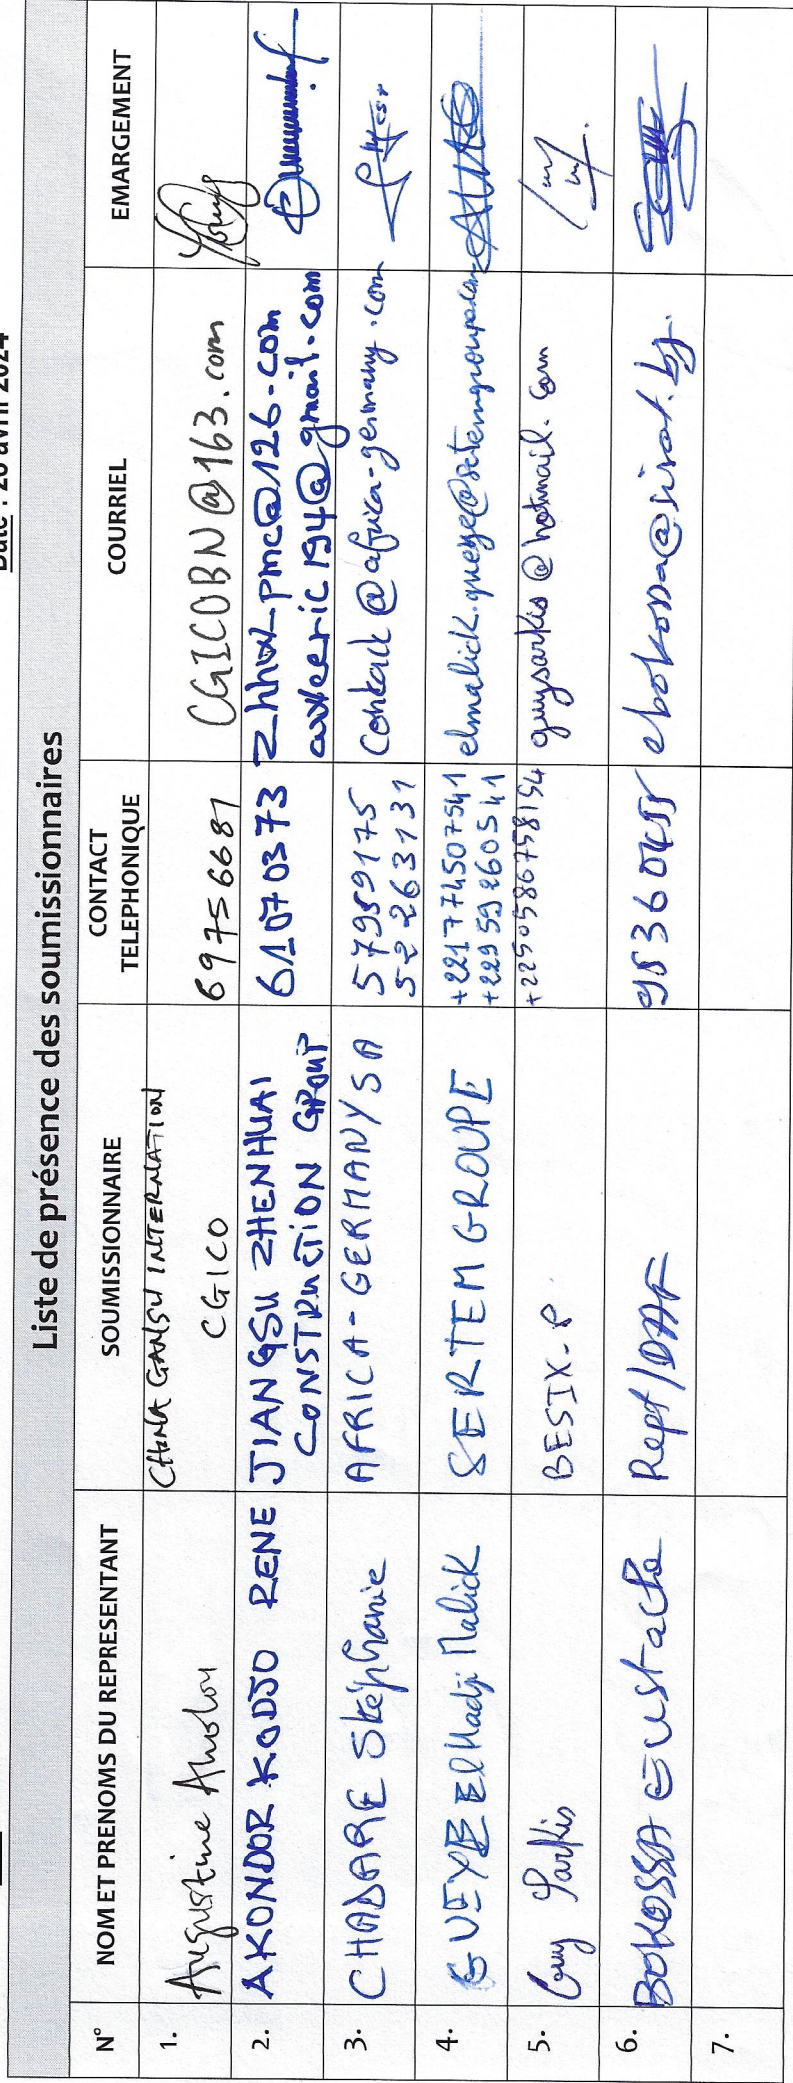 Date : 26 avril 2024
Liste de présence des soumissionnaires
N° NOM ET PRENOMS DU REPRESENTANT SOUMISSIONNAIRE CONTACT TELEPHONIQUE COURRIEL EMARGEMENT
1. Augustine CHINA GANSU INTERNATION
CGICO 69756681 CGICOBN@163.com
2. AKONDOR KODJO RENE JIANGSU ZHENHUAI 61070373 zhhw_pmc@126.com
CONSTRUCTION GROUP
3. CHADARE Stéphanie AFRICA-GERMANY SA 57989175 contact@africa-germany.com
52263131
4. GUEYE El Hadji Malick SERTEM GROUPE +221774507541
+22959260541
5. Guy Sarkis BESIX. +2250586758154 guysarkis@hotmail.com
6. BOKOSSA Eustache Rept/DAF ebokossa@sirat.bj
7.